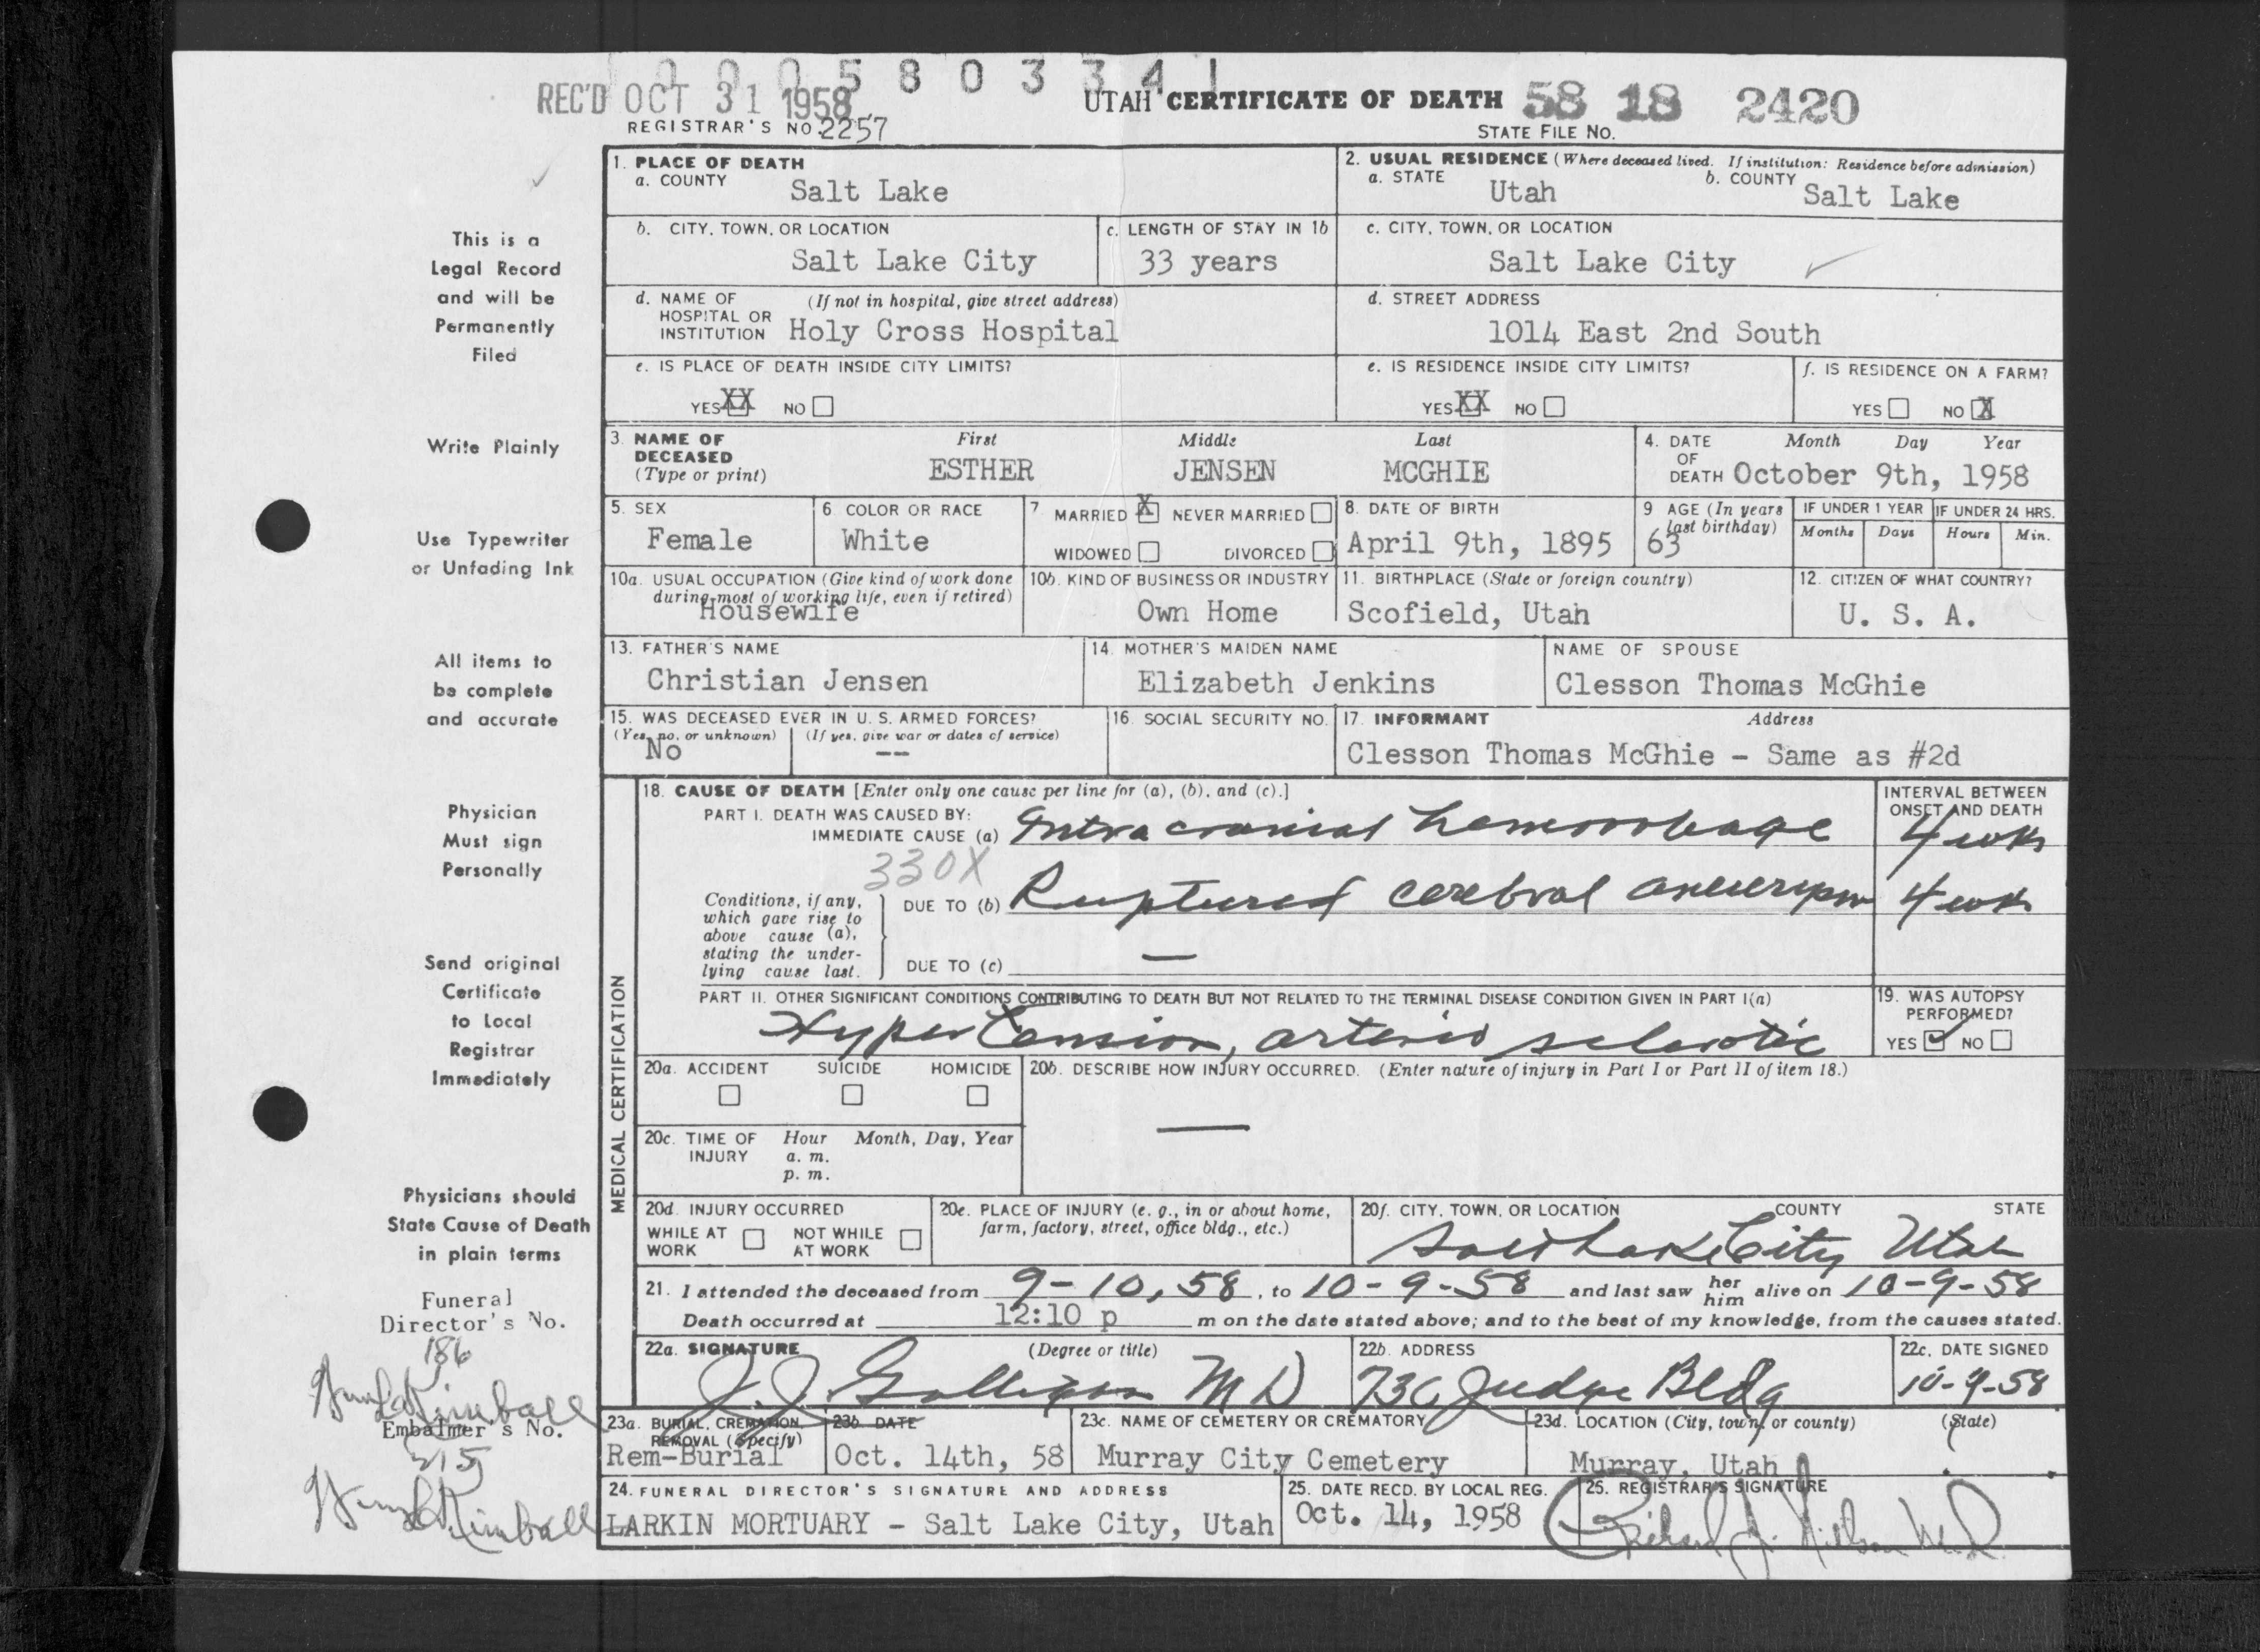 0 0 0 5 8 0 3 3 4 1
REC'D OCT 31 1958
UTAH CERTIFICATE OF DEATH 58 18 2420
REGISTRAR'S NO. 2257
STATE FILE NO.
1. PLACE OF DEATH
a. COUNTY Salt Lake
2. USUAL RESIDENCE (Where deceased lived. If institution: Residence before admission)
a. STATE Utah b. COUNTY Salt Lake
b. CITY, TOWN, OR LOCATION Salt Lake City
c. LENGTH OF STAY IN 1b 33 years
c. CITY, TOWN, OR LOCATION Salt Lake City
d. NAME OF HOSPITAL OR INSTITUTION (If not in hospital, give street address) Holy Cross Hospital
d. STREET ADDRESS 1014 East 2nd South
e. IS PLACE OF DEATH INSIDE CITY LIMITS?
YES XX NO
e. IS RESIDENCE INSIDE CITY LIMITS?
YES XX NO
f. IS RESIDENCE ON A FARM?
YES NO X
3. NAME OF DECEASED (Type or print)
First Middle Last
ESTHER JENSEN MCGHIE
4. DATE OF DEATH Month Day Year
October 9th, 1958
5. SEX Female
6. COLOR OR RACE White
7. MARRIED X NEVER MARRIED
WIDOWED DIVORCED
8. DATE OF BIRTH April 9th, 1895
9 AGE (In years last birthday) 63
IF UNDER 1 YEAR Months Days
IF UNDER 24 HRS. Hours Min.
10a. USUAL OCCUPATION (Give kind of work done during most of working life, even if retired) Housewife
10b. KIND OF BUSINESS OR INDUSTRY Own Home
11. BIRTHPLACE (State or foreign country) Scofield, Utah
12. CITIZEN OF WHAT COUNTRY? U. S. A.
13. FATHER'S NAME Christian Jensen
14. MOTHER'S MAIDEN NAME Elizabeth Jenkins
NAME OF SPOUSE Clesson Thomas McGhie
15. WAS DECEASED EVER IN U. S. ARMED FORCES?
(Yes, no, or unknown) No (If yes, give war or dates of service) --
16. SOCIAL SECURITY NO.
17. INFORMANT Address
Clesson Thomas McGhie - Same as #2d
MEDICAL CERTIFICATION
18. CAUSE OF DEATH [Enter only one cause per line for (a), (b), and (c).]
INTERVAL BETWEEN ONSET AND DEATH
PART I. DEATH WAS CAUSED BY:
IMMEDIATE CAUSE (a) Intra cranial hemorrhage 4 wks
330X
Conditions, if any, which gave rise to above cause (a), stating the underlying cause last.
DUE TO (b) Ruptured cerebral aneurysm 4 wks
DUE TO (c) —
PART II. OTHER SIGNIFICANT CONDITIONS CONTRIBUTING TO DEATH BUT NOT RELATED TO THE TERMINAL DISEASE CONDITION GIVEN IN PART I(a)
Hypertension, arterio sclerotic
19. WAS AUTOPSY PERFORMED?
YES ✓ NO
20a. ACCIDENT SUICIDE HOMICIDE
20b. DESCRIBE HOW INJURY OCCURRED. (Enter nature of injury in Part I or Part II of item 18.)
—
20c. TIME OF INJURY Hour Month, Day, Year
a. m.
p. m.
20d. INJURY OCCURRED
WHILE AT WORK NOT WHILE AT WORK
20e. PLACE OF INJURY (e. g., in or about home, farm, factory, street, office bldg., etc.)
20f. CITY, TOWN, OR LOCATION COUNTY STATE
Salt Lake City Utah
21. I attended the deceased from 9-10,58, to 10-9-58 and last saw her him alive on 10-9-58
Death occurred at 12:10 p m on the date stated above; and to the best of my knowledge, from the causes stated.
22a. SIGNATURE (Degree or title)
J. J. Galligan MD
22b. ADDRESS
730 Judge Bldg
22c. DATE SIGNED
10-9-58
23a. BURIAL, CREMATION, REMOVAL (Specify) Rem-Burial
23b. DATE Oct. 14th, 58
23c. NAME OF CEMETERY OR CREMATORY Murray City Cemetery
23d. LOCATION (City, town, or county) (State)
Murray, Utah
24. FUNERAL DIRECTOR'S SIGNATURE AND ADDRESS
LARKIN MORTUARY - Salt Lake City, Utah
25. DATE RECD. BY LOCAL REG. Oct. 14, 1958
25. REGISTRAR'S SIGNATURE
This is a
Legal Record
and will be
Permanently
Filed
Write Plainly
Use Typewriter
or Unfading Ink
All items to
be complete
and accurate
Physician
Must sign
Personally
Send original
Certificate
to Local
Registrar
Immediately
Physicians should
State Cause of Death
in plain terms
Funeral
Director's No.
186
Kimball
Embalmer's No.
215
Kimball